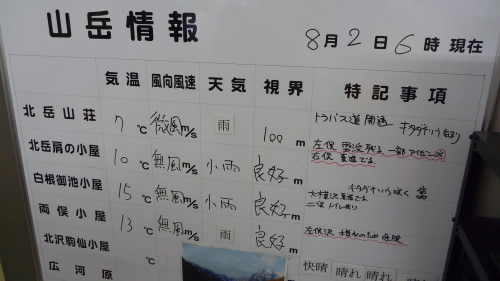 山岳情報
8月2日6時現在
気温 風向風速 天気 視界 特記事項
北岳山荘 7℃ 微風m/s 雨 100m トラバース道開通
北岳肩の小屋 10℃ 無風m/s 小雨 良好m 左俣 雪渓残る 一部アイゼン
右俣
白根御池小屋 15℃ 無風m/s 小雨 良好m キタダケソウ咲く
大樺沢
二俣 トイレあり
両俣小屋 13℃ 無風m/s 雨 良好m 左俣沢 増水のため危険
北沢駒仙小屋 ℃
広河原
快晴 晴れ 晴れ